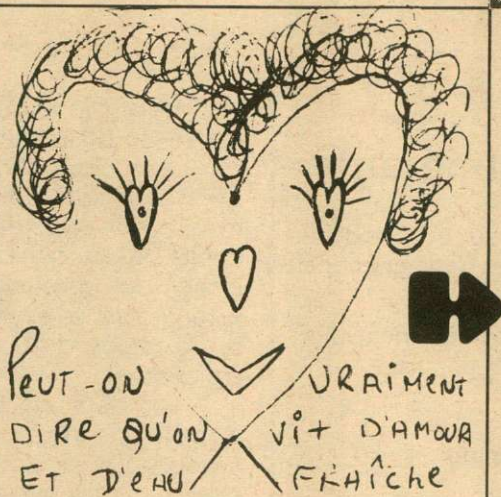 PEUT-ON VRAIMENT
DIRE QU'ON VIT D'AMOUR
ET D'EAU FRAÎCHE